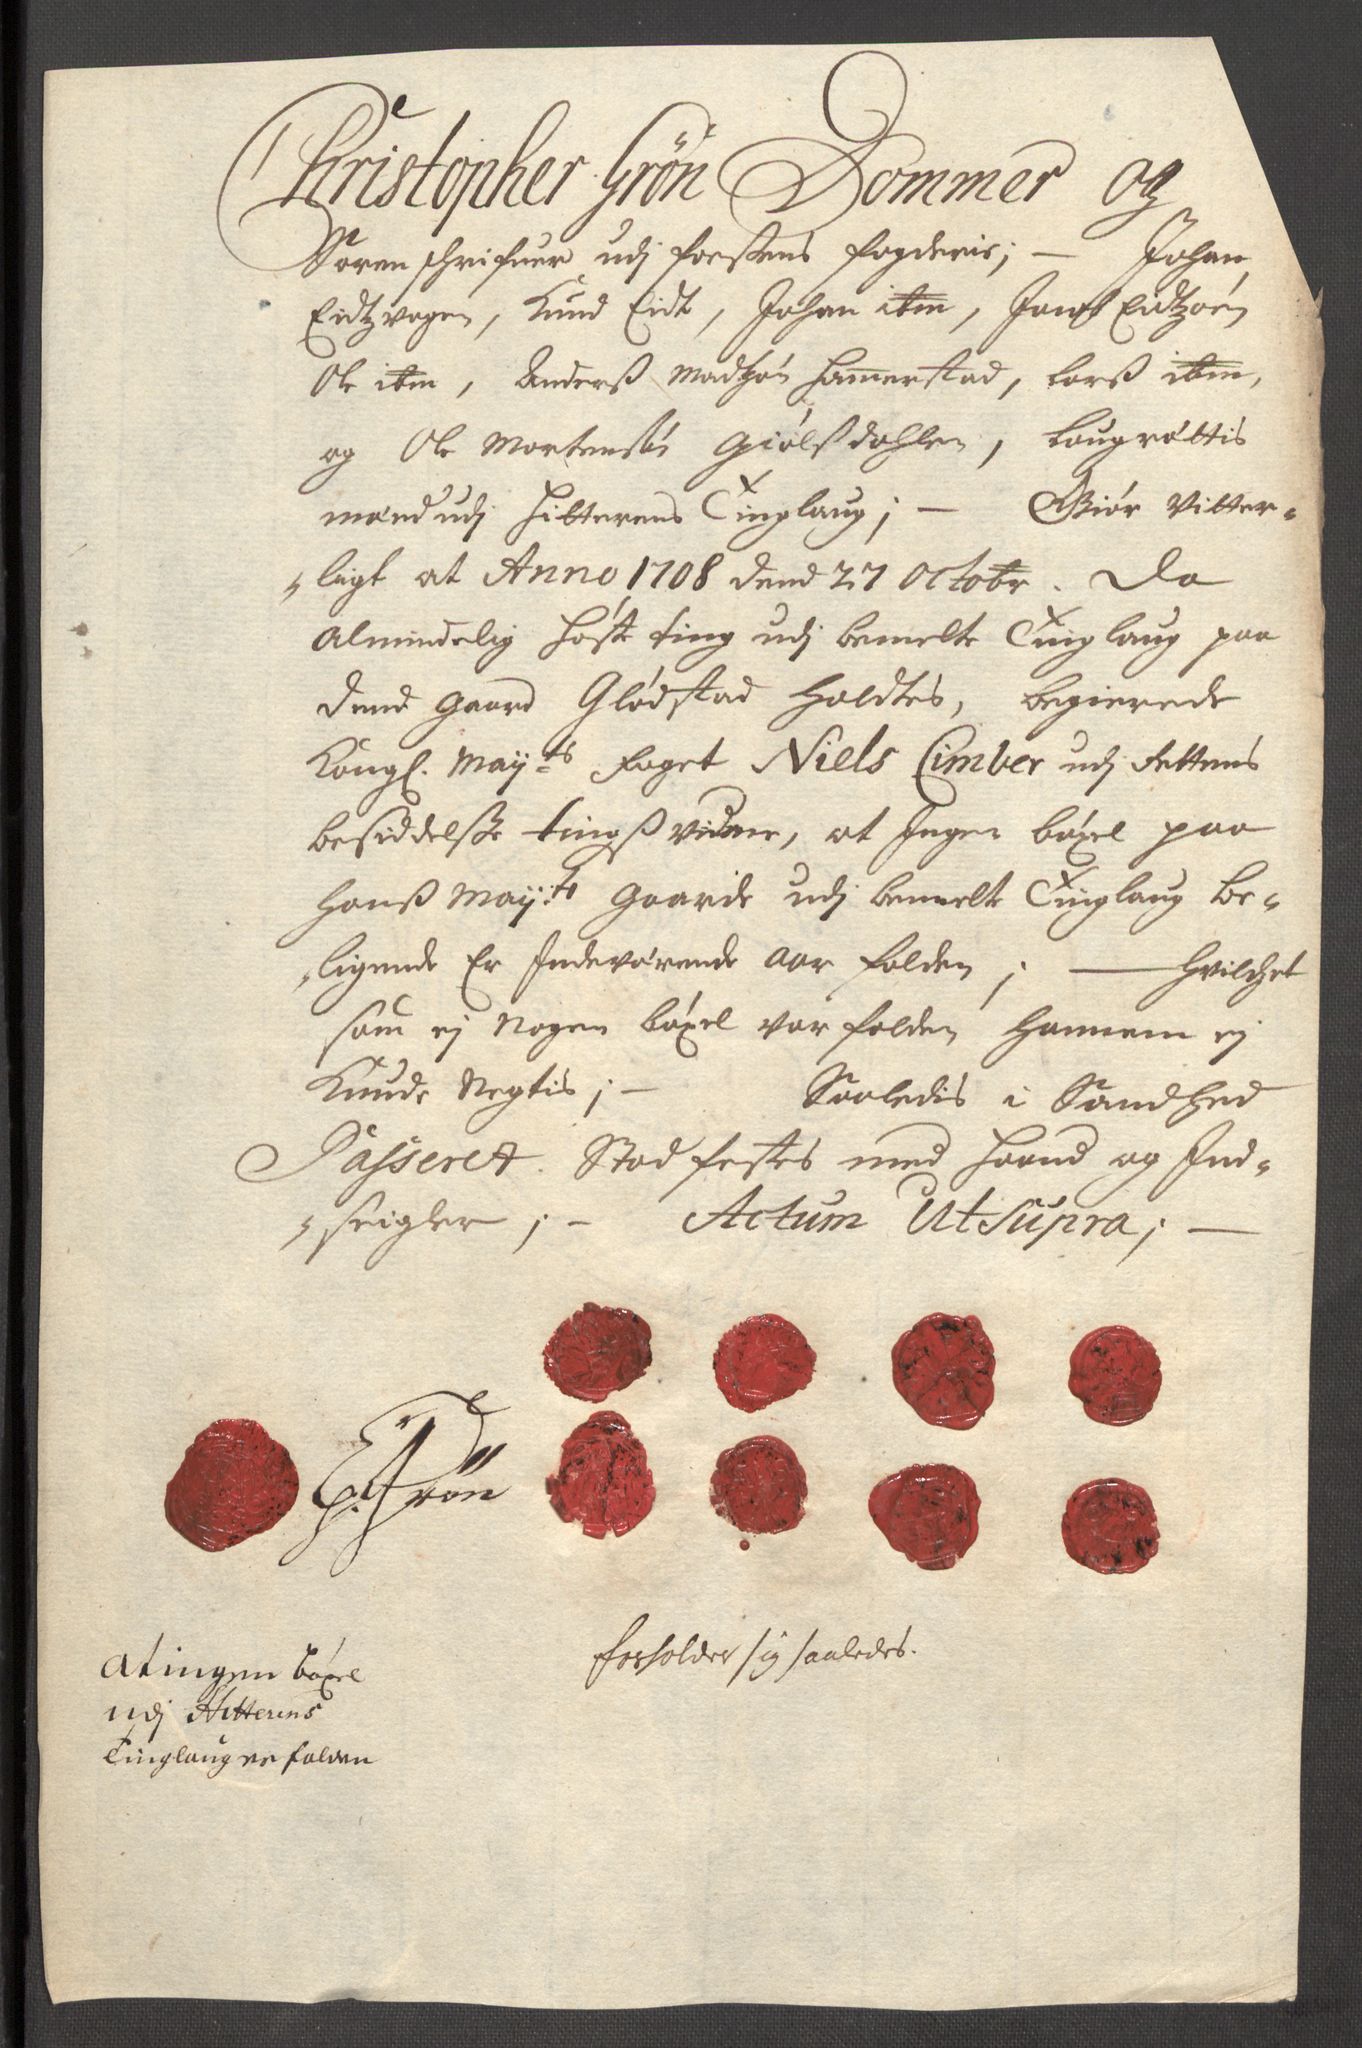 Christopher Grön Dommer og
Soren schrifuer udj foessens fogderie; — Johan
Eidtzvogen, Knud Eidt, Johan itm, Jens Eidtzøen
Ole itm, Anderss Madtzøn Hammerstad, Larss itm,
og Ole Mortensøn Giölssdahlen, Laugröttis
mænd udj Hitterens Tinglaug; — Giör Vitter-
ligt at Anno 1708 dend 27 Octobr. Da
Almindelig Höste ting udj bemelte Tinglaug paa
dend gaard Glödstad Holdtes, begierede
Kongl. Mayts foget Niels Cimber udj Rettens
besiddelsse tingss vidne, at Ingen böxel paa
Hanss Mayts gaarde udj bemelte Tinglaug be-
ligende Er Indeværende Aar falden; — Hvilchet
som ej Nogen böxel var falden Hannem ej
Kunde Negtis; — Saaledis i Sandhed
Passeret. Stadfestes med Haand og Ind-
seigler; — Actum Ut Supra; —
C. Grön
At ingen böxel
udj Hitterens
Tinglaug er falden
forholder sig saaledes.